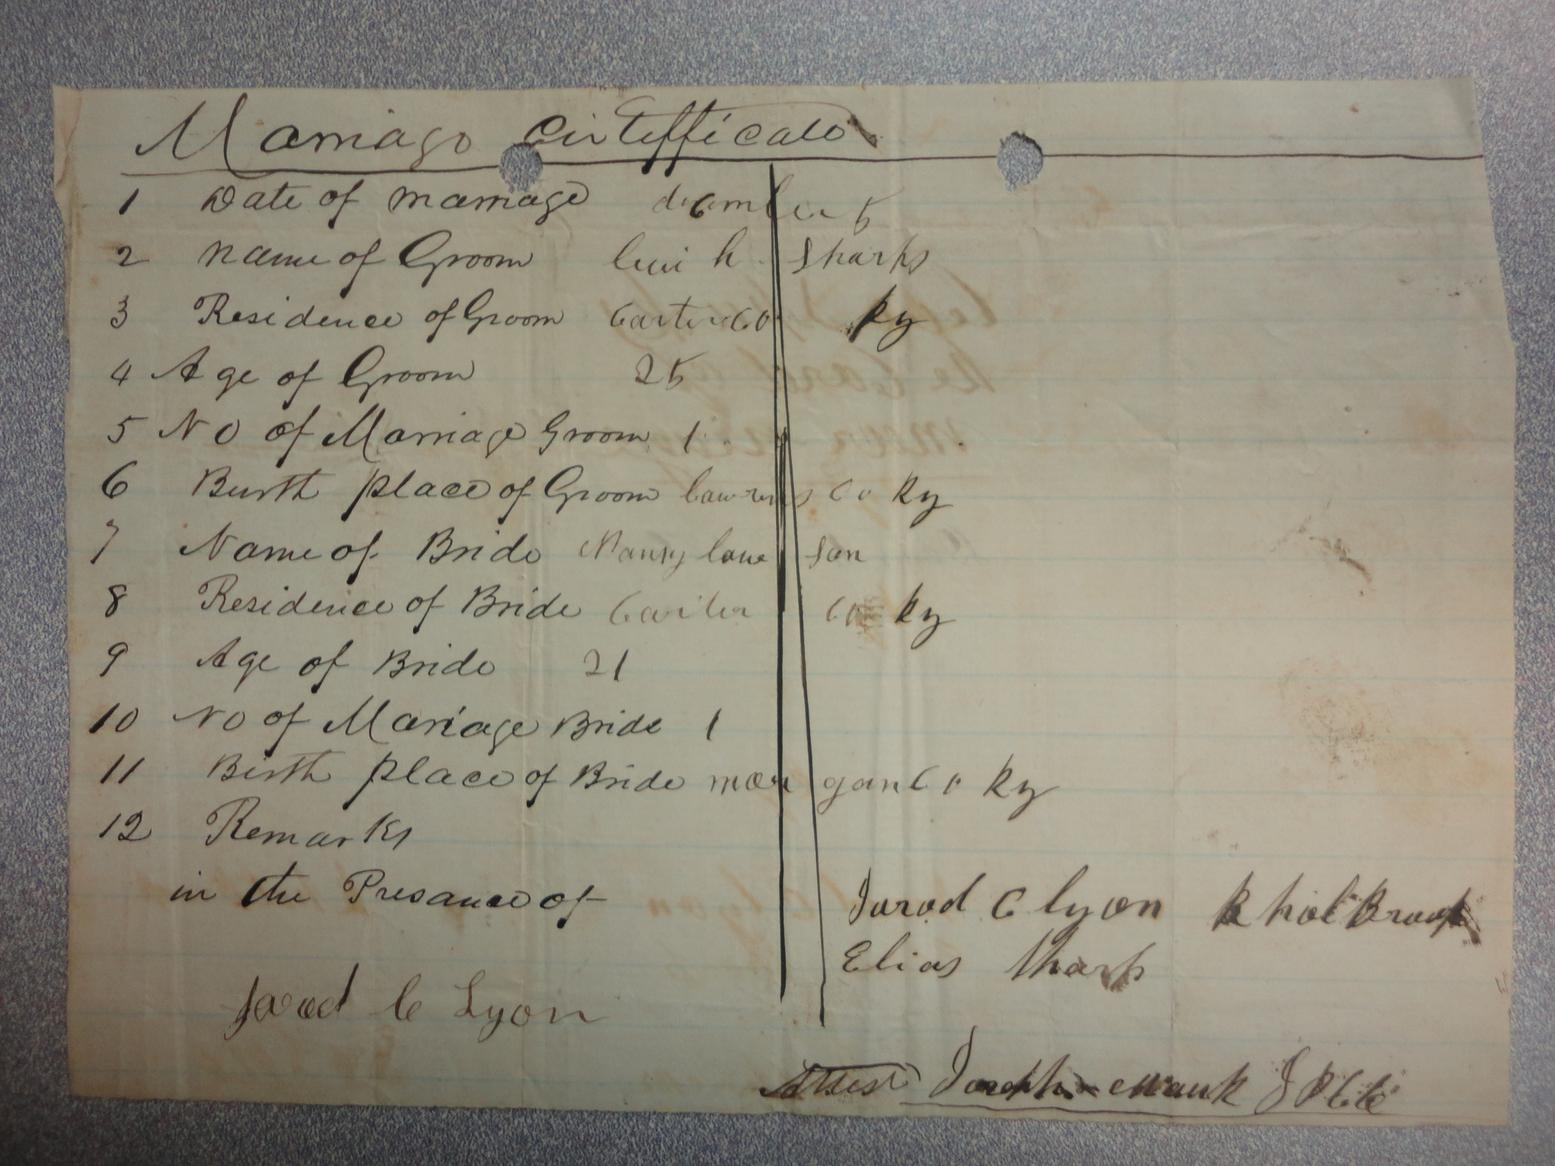 Marriage Cirtifficate
1 Date of marriage decmber 5
2 Name of Groom Levi h Sparks
3 Residence of Groom Carter Co Ky
4 Age of Groom 25
5 No of Marriage Groom 1
6 Burth place of Groom Co Ky
7 Name of Bride Nancy law son
8 Residence of Bride Carter Co Ky
9 Age of Bride 21
10 No of Mariage Bride 1
11 Birth place of Bride mor gan Co Ky
12 Remarks
in the Presance of Jarod C lyon
Elias
Jarod C Lyon
Attest Joseph